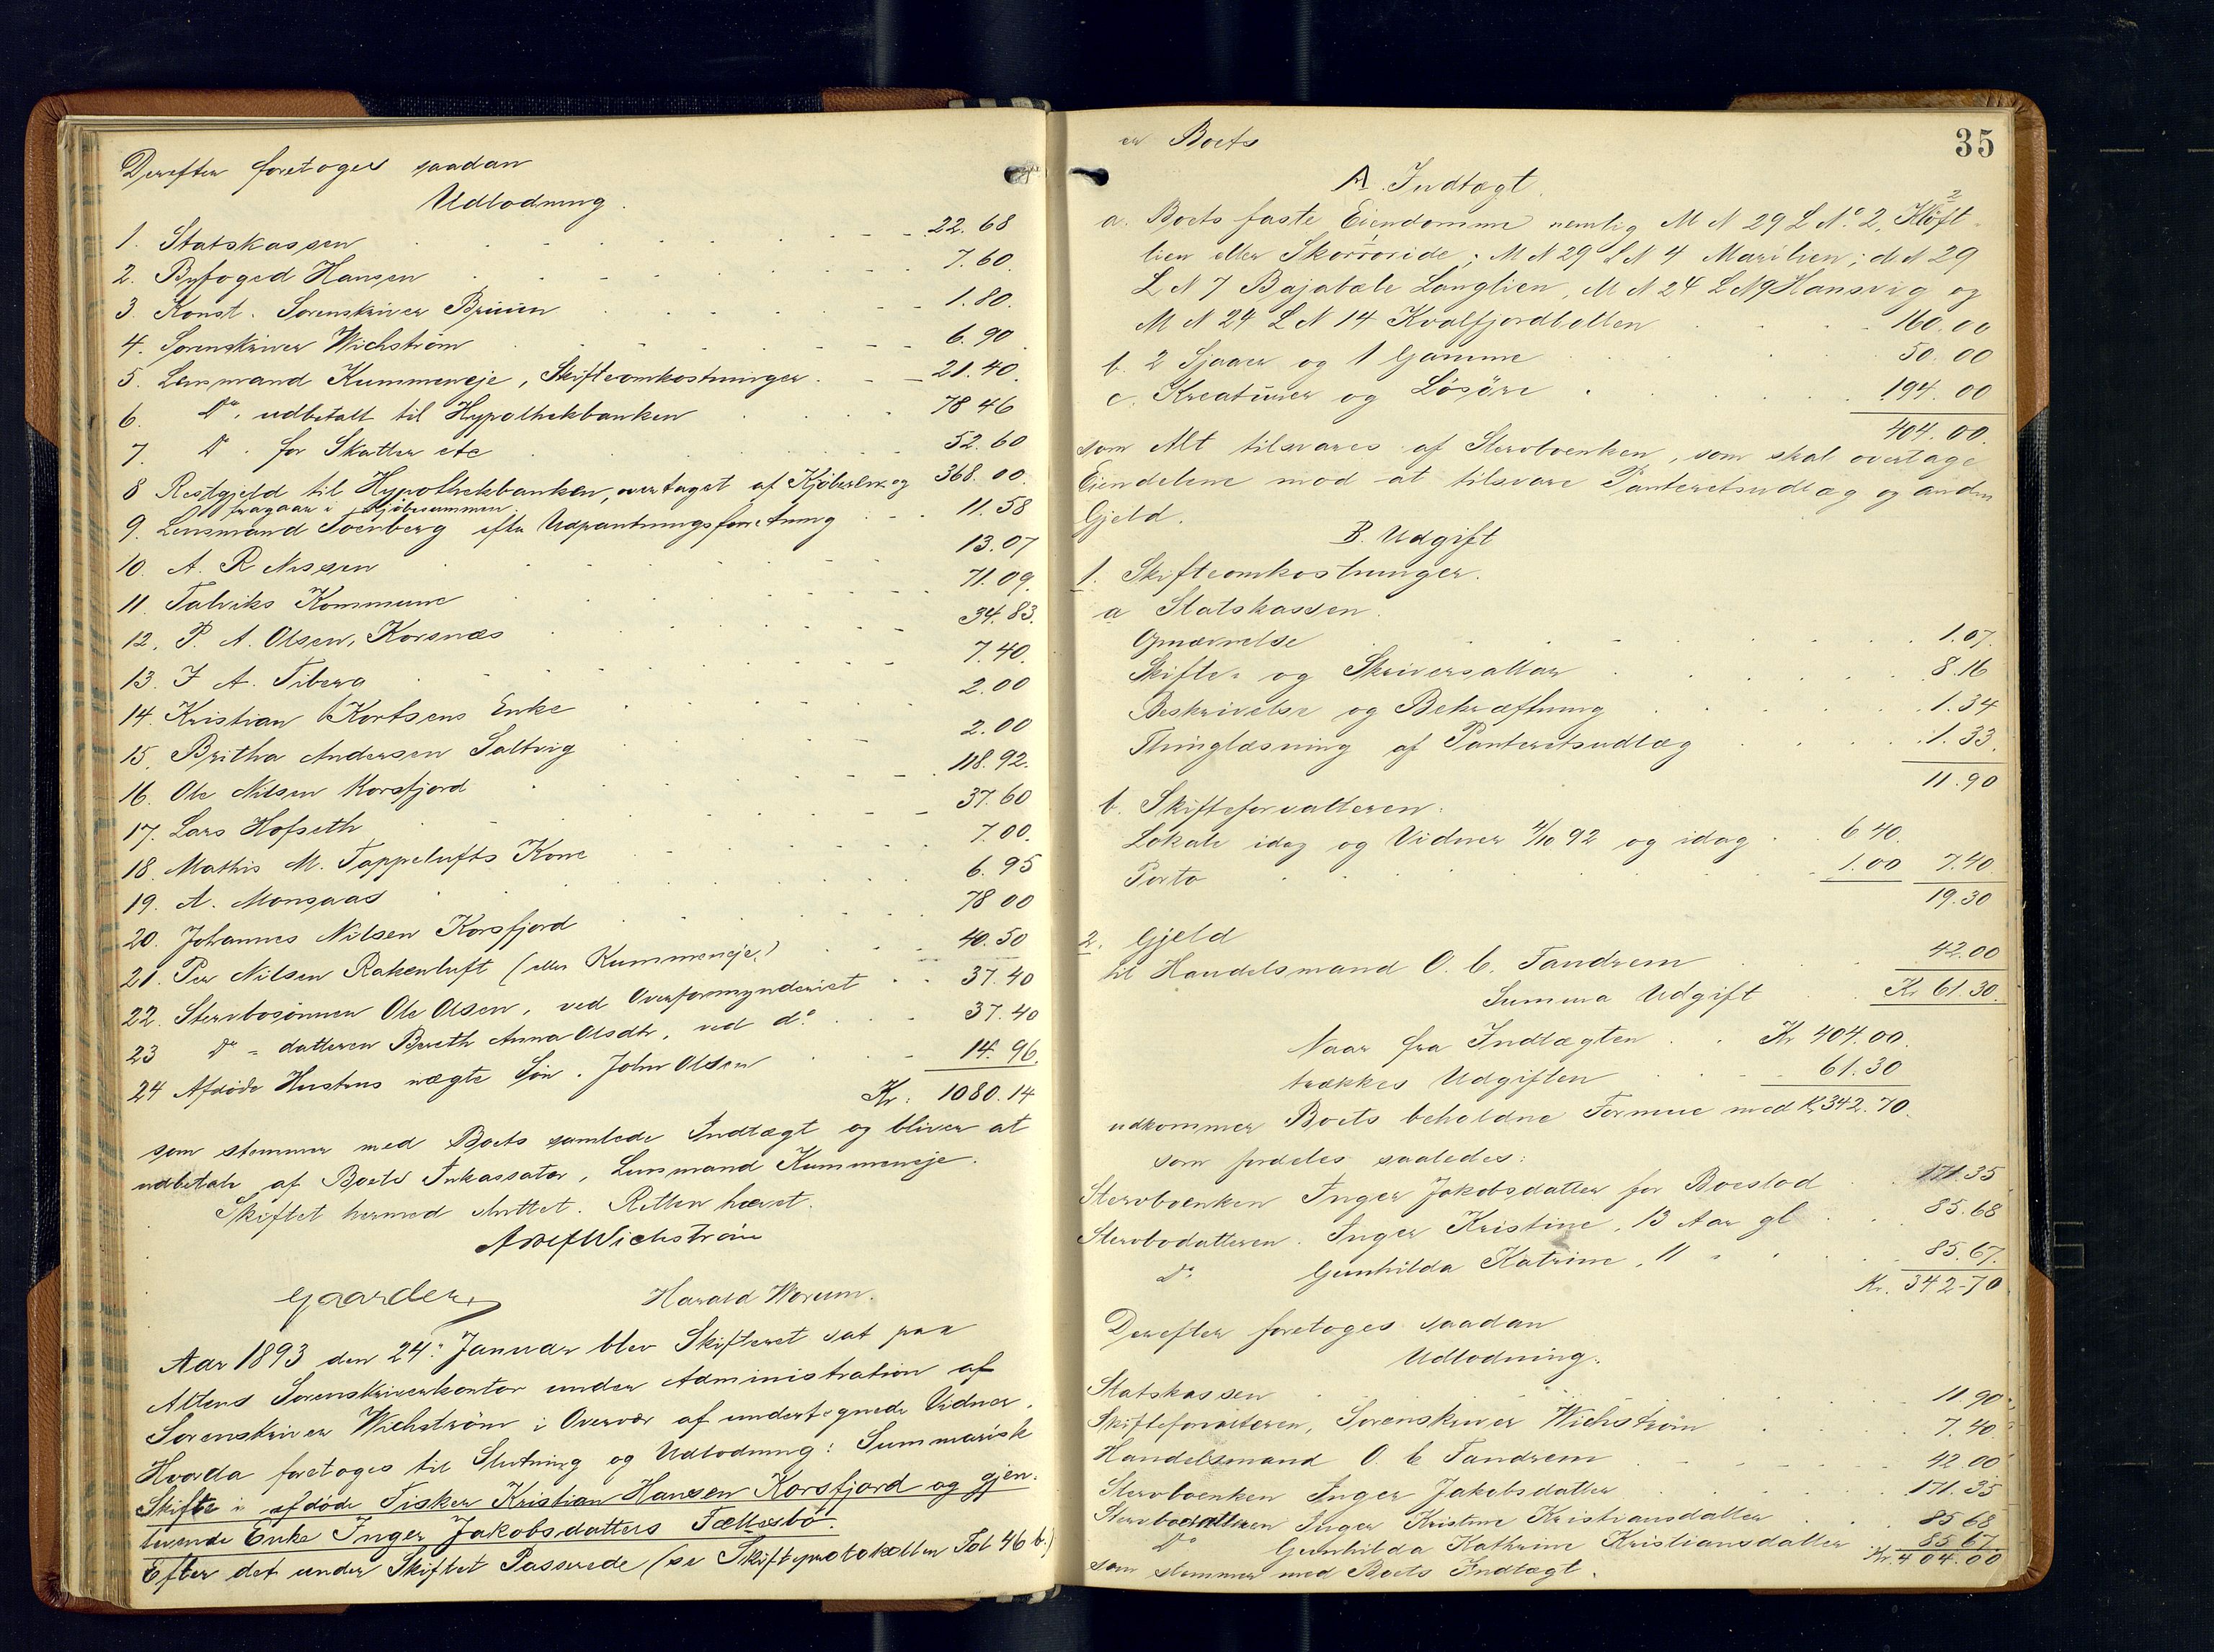 Derefter foretoges saadan
Udlodning.
1. Statskassen 22.68
2. Byfoged Hansen 7.60.
3. Konst. Sorenskriver Bruun 1.80.
4. Sorenskriver Wichstrøm 6.90
5. Lensmand Kummeneje, Skifteomkostninger 21.40.
6. Do. udbetalt til Hypothekbanken 78 46
7. Do. for Skatter etc 52.60
8 Restgjeld til Hypothekbanken, overtaget af Kjøberen og 368.00.
fragaar i Kjøbesummen
9. Lensmand efter Udpantningsforretning 11.58
10. A. R Nissen 13.07
11. Talviks Kommune 71.09.
12. P. A. Olsen, Korsnæs 34.83.
13. J A. Tiberg 7.40.
14. Kristian Kortsens Enke 2.00
15. Britha Andersen Saltvig 2.00
16. Ole Nilsen Korsfjord 118.92.
17. Lars Hofseth 37.60
18. Mathis M. Tappelufts Kone 7.00.
19. A. Monsaas 6.95
20. Johannes Nilsen Korsfjord 78 00
21. Per Nilsen Rakenluft (eller Kummeneje) 40.50
22. Stervbosønnen Ole Olsen, ved Overformynderiet 37.40
23 Do - datteren Bereth Anna Olsdtr, ved do. 37.40
24 Afdøde Hustrus uægte Søn. John Olsen 14.96.
Kr: 1080.14
som stemmer med Boets samlede Indtægt og bliver at
udbetale af Boets Inkassator, Lensmand Kummeneje.
Skiftet hermed sluttet. Retten hævet.
Wichstrøm
Gaarder Harald Worum.
Aar 1893 den 24: Januar blev Skifteret sat paa
Altens Sorenskriverkontor under Administration af
Sorenskriver Wichstrøm i Overvær af undertegnede Vidner.
Hvorda foretoges til Slutning og Udlodning: Summarisk
Skifte i afdøde Fisker Kristian Hansen Korsfjord og gjen-
levende Enke Inger Jakobsdatters Fællesbo.
Efter det under Skiftet Passerede (se Skifteprotokollen Fol 46 b.)
35
er Boets
A. Indtægt.
a. Boets faste Eiendomme nemlig M N 29 L No. 2, Kløft-
lien eller Skorroride; M N 29 L N 4 Marilien; do N 29
L N 7 Bajabæle Langlien, M N 24 L N 9 Hansvig og
M N 24 L N 14 Kvalfjordbotten 160.00
b. 2 Sjaaer og 1 Gamme 50.00
c. Kreaturer og Løsøre 194.00
404.00.
som Alt tilsvares af Stervboenken, som skal overtage
Eiendelene mod at tilsvare Panteretsudlæg og anden
Gjeld.
B. Udgift
1. Skifteomkostninger.
a Statskassen.
Opnævnelse 1.07.
Skifte- og Skriversallær 8.16
Beskrivelse og Bekræftning 1.34
Thinglæsning af Panteretsudlæg 1.33.
11.90
b. Skifteforvalteren.
Lokale idag og Vidner 4/10 92 og idag 6 40.
Porto 1.00 7.40
19.30
2. Gjeld
til Handelsmand O. C. Tandrem 42.00
Summa Udgift Kr 61.30.
Naar fra Indtægten Kr 404.00.
trækkes Udgiften 61.30
udkommer Boets beholdne Formue med Kr 342.70.
som fordeles saaledes:
Stervboenken Inger Jakobsdatter for Boeslod 171.35
Stervbodatteren. Inger Kristine, 13 Aar gl 85.68
Do. Gunhilda Katrine, 11 " " 85.67.
Kr. 342-70
Derefter foretoges saadan
Udlodning.
Statskassen 11.90
Skifteforvalteren, Sorenskriver Wichstrøm 7.40
Handelsmand O. C Tandrem 42.00
Stervboenken Inger Jakobsdatter 171.35
Stervbodatteren Inger Kristine Kristiansdatter 85 68
Do Gunhilda Kathrine Kristiansdatter 85 67.
Kr. 404.00
som stemmer med Boets Indtægt.